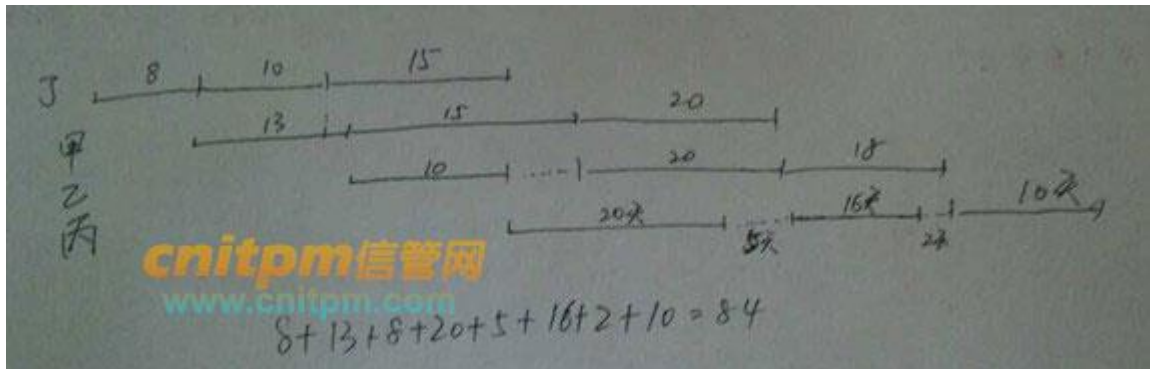 丁 8 10 15
甲 13 15 20
乙 10 ..... 20 18
丙 20天 5天 16天 2天 10天
cnitpm信管网
www.cnitpm.com
8+13+8+20+5+16+2+10=84